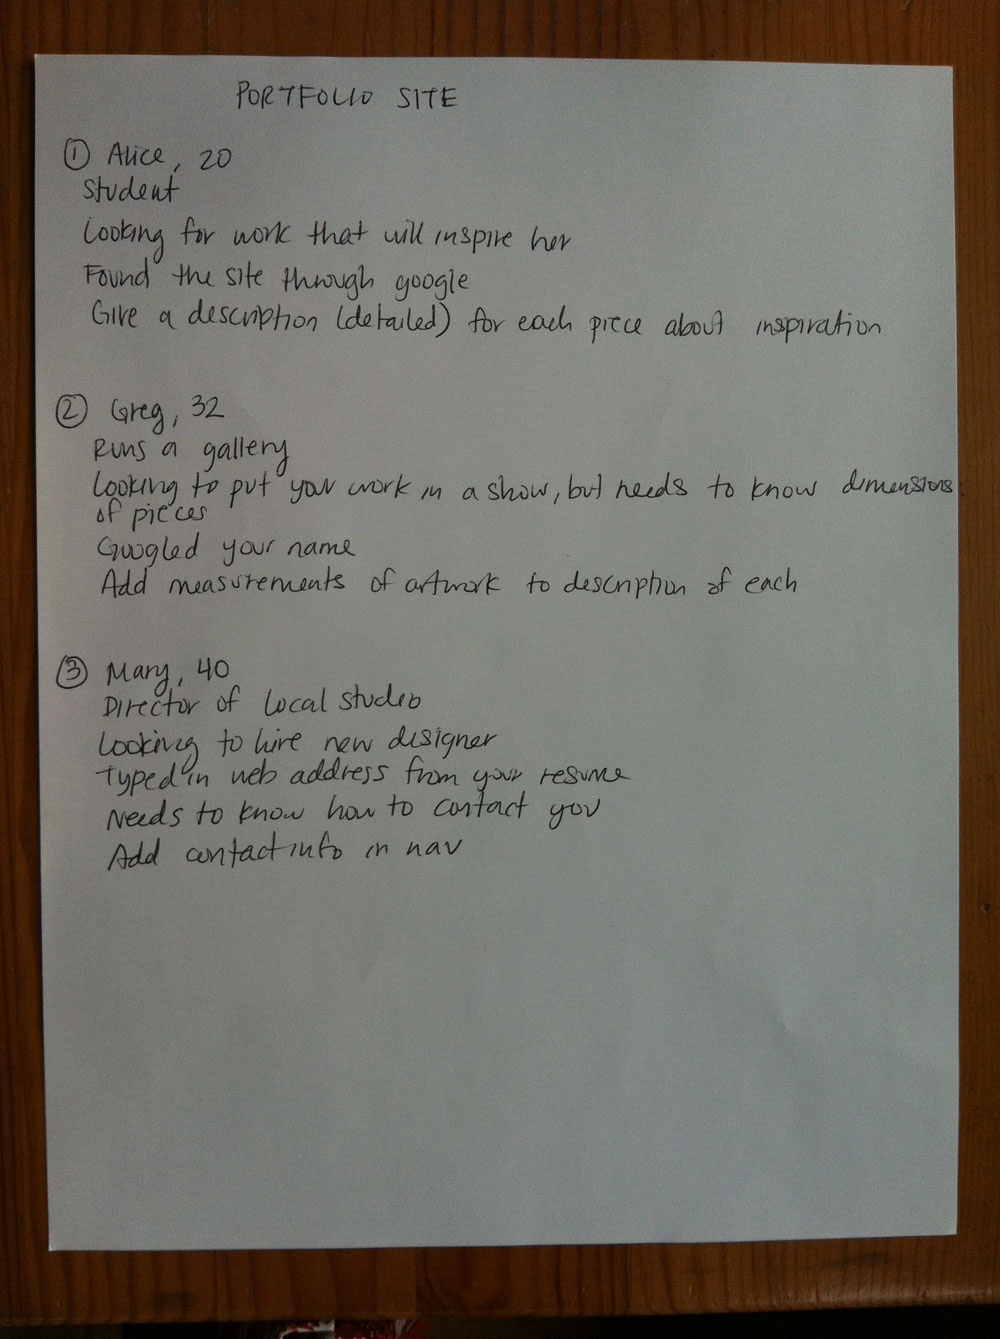 PORTFOLIO SITE
① Alice, 20
Student
Looking for work that will inspire her
Found the site through google
Give a description (detailed) for each piece about inspiration
② Greg, 32
Runs a gallery
Looking to put your work in a show, but needs to know dimensions
of pieces
Googled your name
Add measurements of artwork to description of each
③ Mary, 40
Director of local studio
Looking to hire new designer
Typed in web address from your resume
Needs to know how to contact you
Add contact info in nav